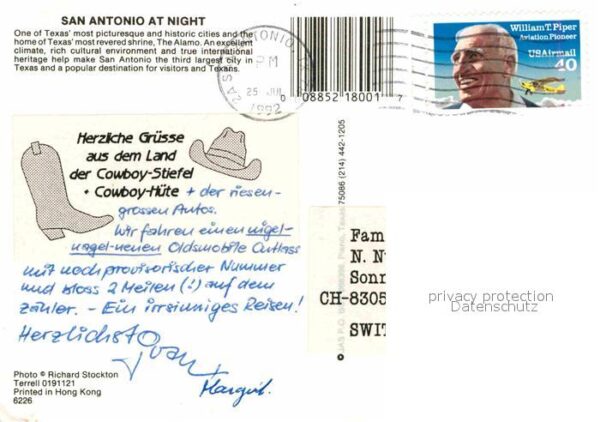 SAN ANTONIO AT NIGHT
One of Texas' most picturesque and historic cities and the
home of Texas' most revered shrine, The Alamo. An excellent
climate, rich cultural environment and true international
heritage help make San Antonio the third largest city in
Texas and a popular destination for visitors and Texans.
SAN ANTONIO
PM
25 JUL
1992
0 08852 18001 7
William T. Piper
Aviation Pioneer
USAirmail
40
Herzliche Grüsse
aus dem Land
der Cowboy-Stiefel
+ Cowboy-Hüte + der riesen-
grossen Autos.
Wir fahren einen nigel-
nagel-neuen Oldsmobile Cutlass
mit noch provisorischer Nummer
und bloss 2 Meilen (!) auf dem
Zähler. - Ein irrsinniges Reisen!
Herzlichst
Margrit.
Photo © Richard Stockton
Terrell 0191121
Printed in Hong Kong
6226
Plano, Texas 75086 (214) 442-1205
Fam
N. N
Sonn
CH-8305
SWIT
privacy protection
Datenschutz